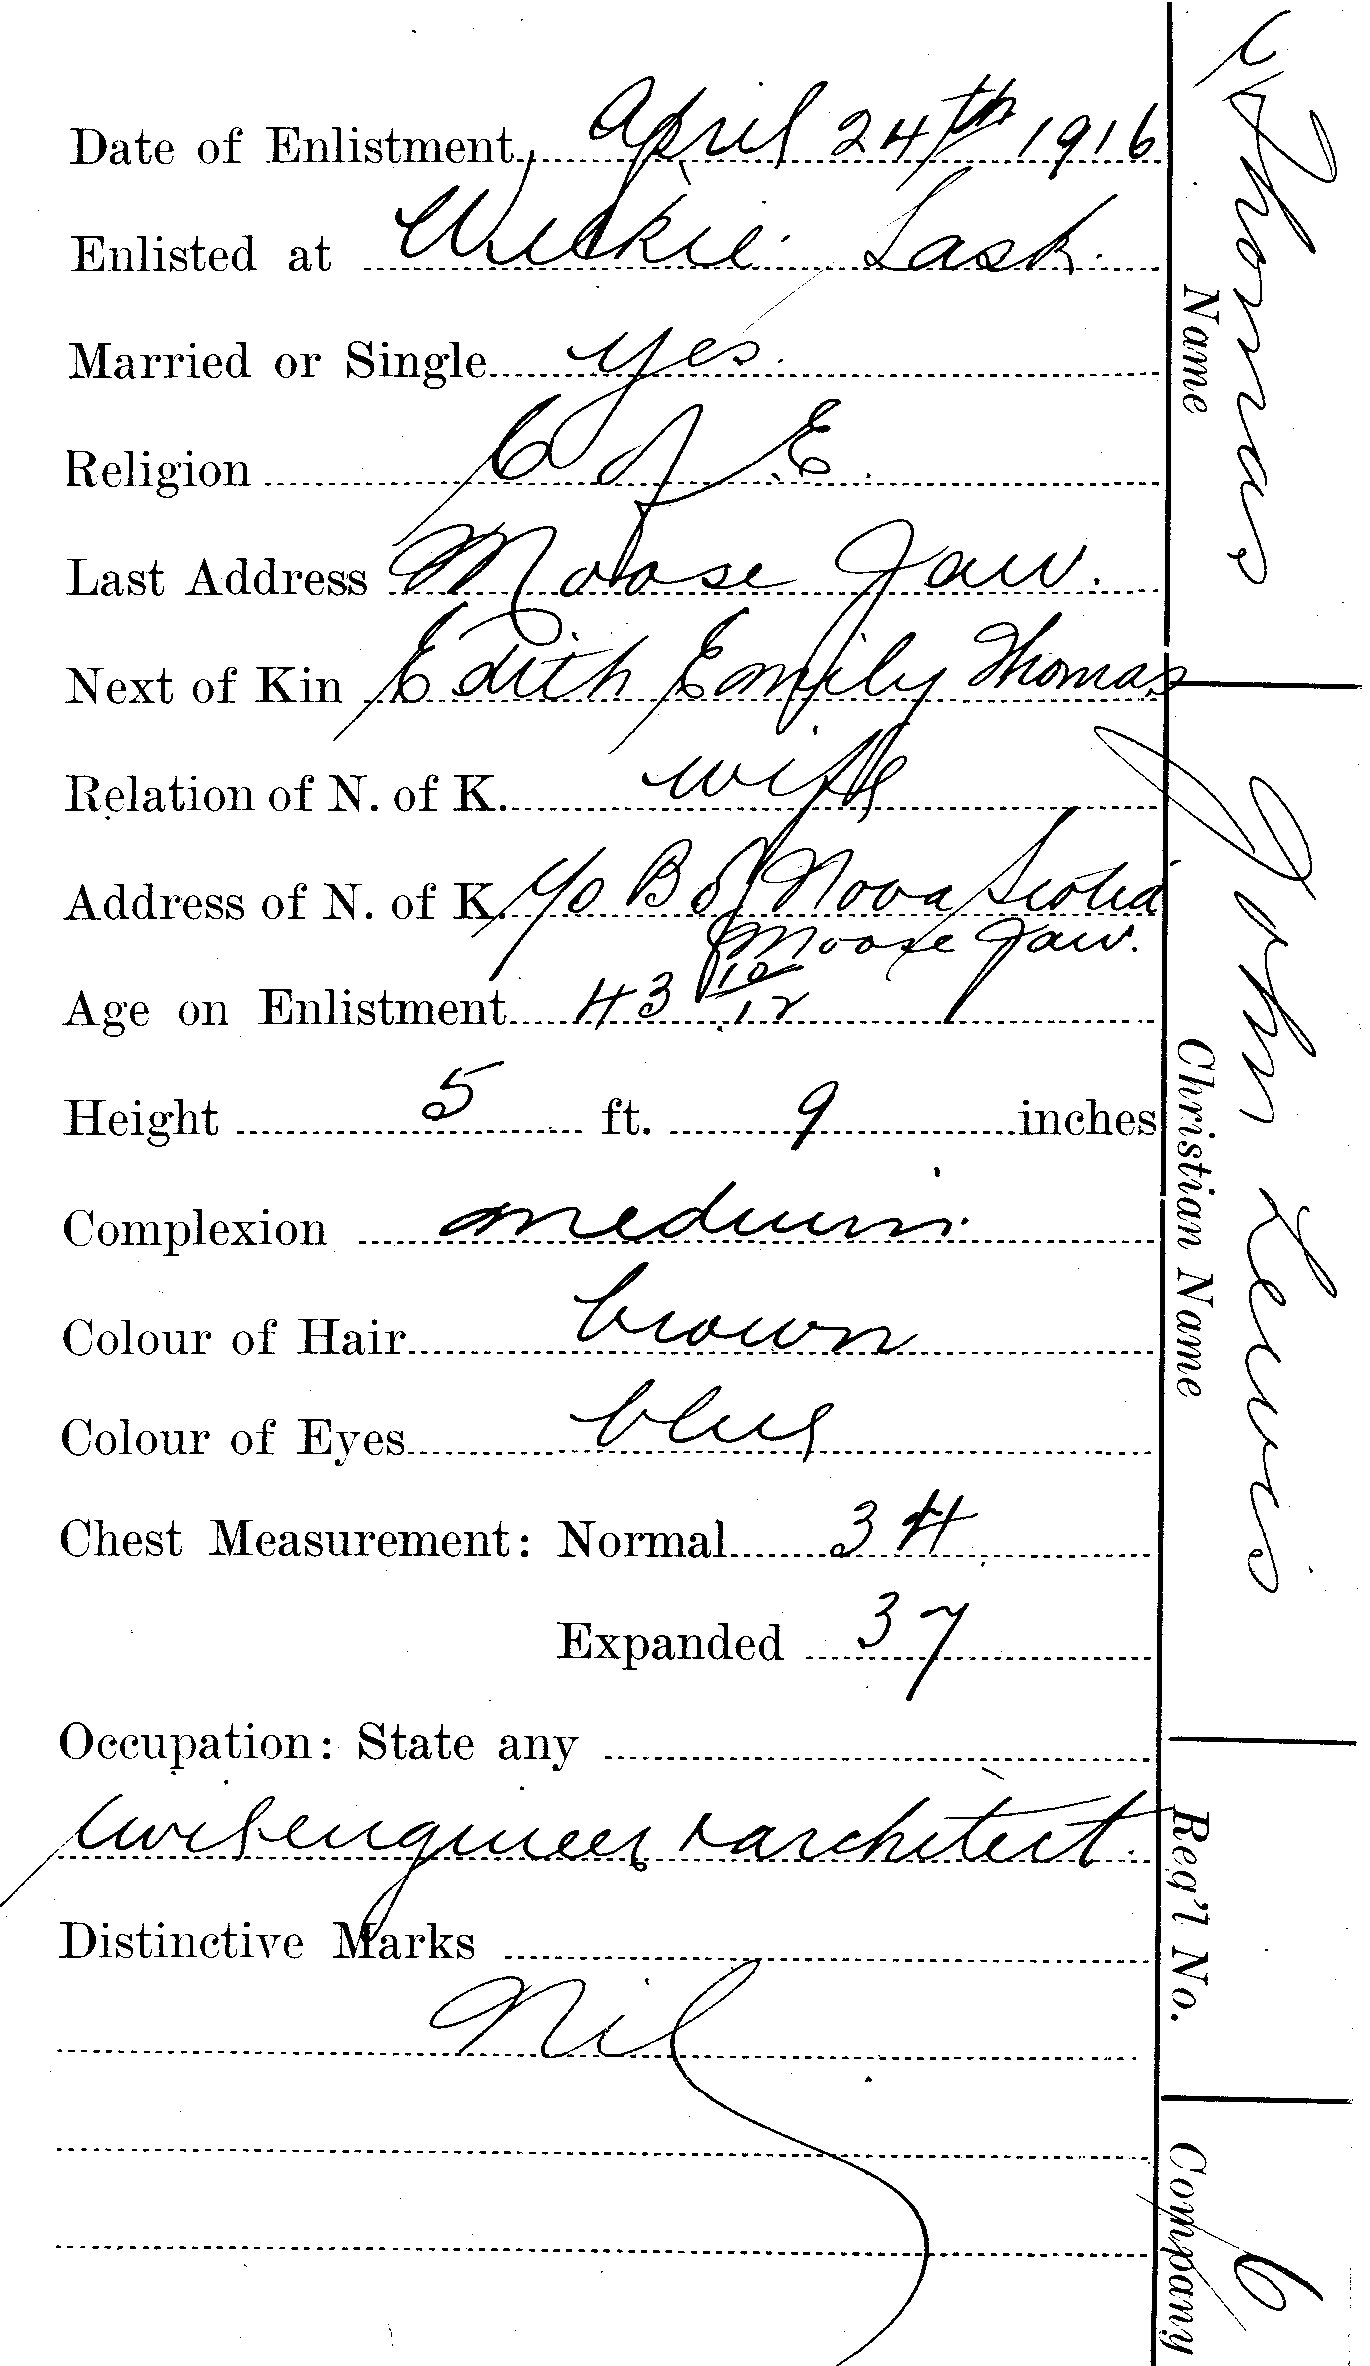 Date of Enlistment April 24th 1916
Enlisted at Wilkie Sask.
Married or Single yes.
Religion C of E.
Last Address Moose Jaw.
Next of Kin Edith Emily Thomas
Relation of N. of K. wife
Address of N. of K. c/o B of Nova Scotia
Moose Jaw.
Age on Enlistment 43 10/12
Height 5 ft. 9 inches
Complexion medium.
Colour of Hair brown
Colour of Eyes blue
Chest Measurement: Normal 34
Expanded 37
Occupation: State any
Civil engineer & architect.
Distinctive Marks
Nil
Thomas
Name
John Lewis
Christian Name
Reg'l No.
Company